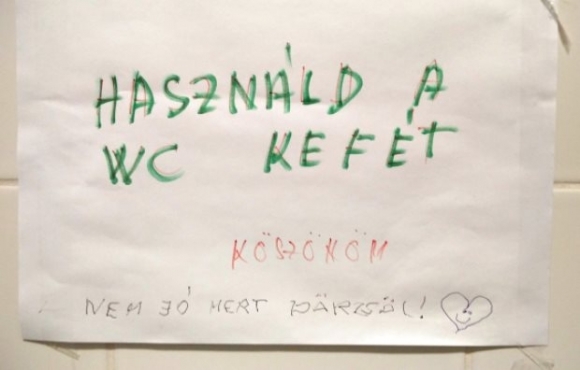 HASZNÁLD A
WC KEFÉT
KÖSZÖNÖM
NEM JÓ MERT DÄRZSÖL!